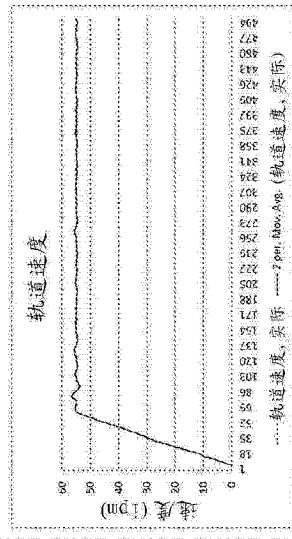 轨道速度
速度 (ipm)
60
50
40
30
20
10
0
1 18 35 52 69 86 103 120 137 154 171 188 205 222 239 256 273 290 307 324 341 358 375 392 409 426 443 460 477 494
轨道速度, 实际 2 per. Mov. Avg. (轨道速度, 实际)